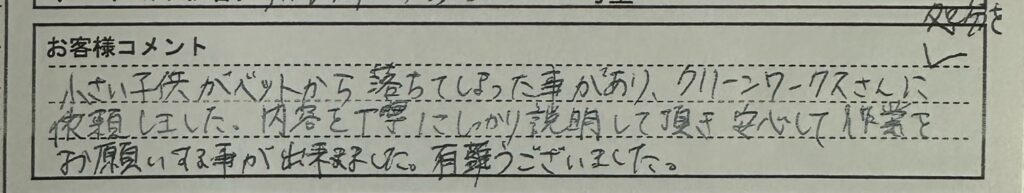 処分を
お客様コメント
小さい子供がベットから落ちてしまった事があり、クリーンワークスさんに
依頼しました。内容を丁寧にしっかり説明して頂き安心して作業を
お願いする事が出来ました。有難うございました。